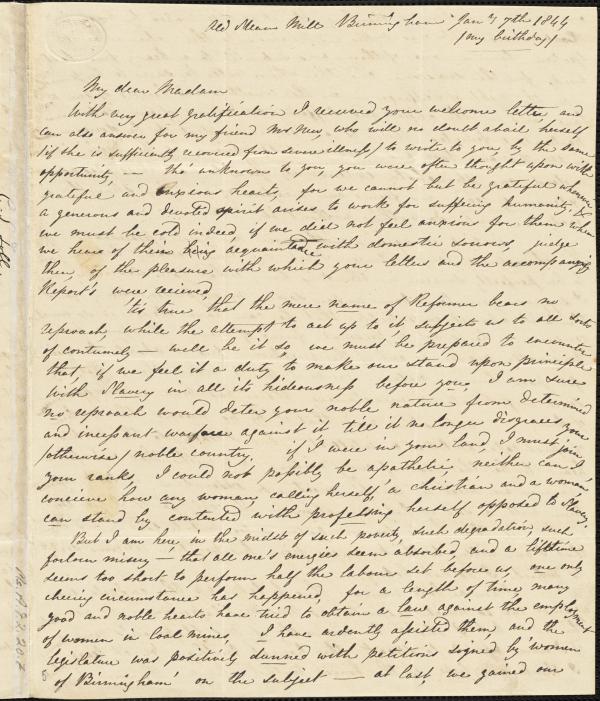 Mean Mill Birmingham Jany 7th 1844
(my birthday)
My dear Madam
With very great gratification I received your welcome letter and
can also answer for my friend Mrs who will no doubt avail herself
(if she is sufficiently recovered from severe illness) to write to you by the same
opportunity, — tho unknown to you, you were often thought upon with
grateful and anxious hearts, for we cannot but be grateful whenever
a generous and devoted spirit arises to work for suffering humanity, &
we must be cold indeed if we did not feel anxious for them when
we hear of their being acquainted with domestic sorrows, judge
then, of the pleasure with which your letters and the accompanying
Report's were received,
'tis true that the mere name of Reformer bears no
reproach, while the attempt to act up to it, subjects us to all sorts
of contumely — well be it so, we must be prepared to encounter
that if we feel it a duty to make our stand upon principle
With Slavery in all its hideousness before you, I am sure
no reproach would deter your noble nature from determined
and incessant warfare against it till it no longer disgraces your
(otherwise) noble country. if I were in your land, I must join
your ranks, I could not possibly be apathetic, neither can I
concieve how any woman calling herself, 'a christian and a woman'
can stand by contented with professing herself opposed to Slavery.
But I am here, in the midst of such poverty, such degradation, such
forlorn misery — that all one's energies seem absorbed, and a lifetime
seems too short to perform half the labour set before us, one only
cheering circumstance has happened, for a length of time many
good and noble hearts have tried to obtain a law against the employment
of women in Coal mines, I have ardently assisted them and the
legislature was positively dunned with petitions signed by 'women
of Birmingham' on the subject — at last, we gained our